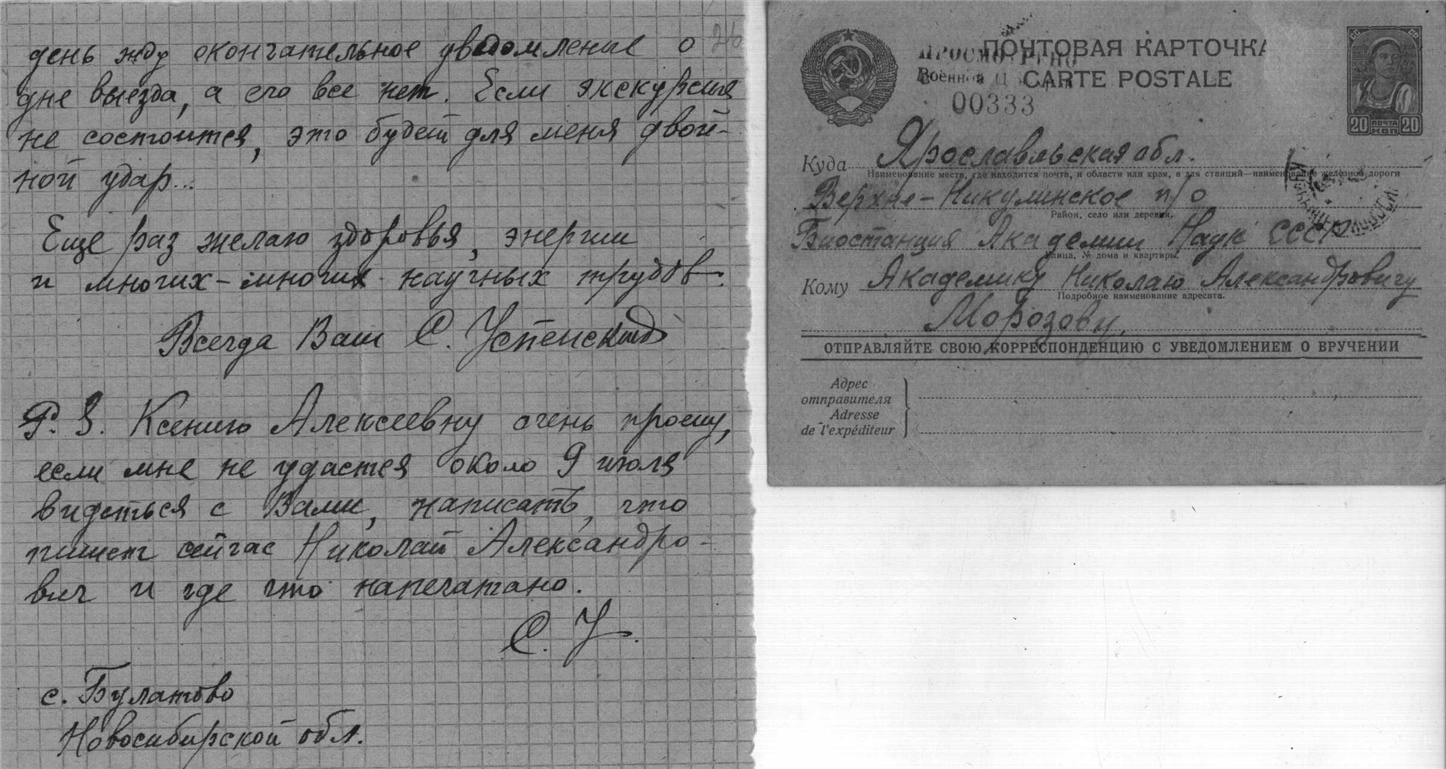 день жду окончательное уведомление о
дне выезда, а его все нет. Если экскурсия
не состоится, это будет для меня двой-
ной удар...
Еще раз желаю здоровья, энергии
и многих-многих научных трудов.
Всегда Ваш С. Успенский
P. S. Ксению Алексеевну очень прошу,
если мне не удастся около 9 июля
видеться с Вами, написать, что
пишет сейчас Николай Александро-
вич и где что напечатано.
С. У.
с. Булатово
Новосибирской обл.
ПРОСМОТРЕНО
Военной
00333
ПОЧТОВАЯ КАРТОЧКА
CARTE POSTALE
20 ПОЧТА 20
КОП
Куда Ярославльская обл.
Наименование места, где находится почта, и области или края, а для станций—наименование железной дороги
Верхне-Никулинское п/о
Район, село или деревня.
Биостанция Академии Наук СССР
Улица, № дома и квартиры.
Кому Академику Николаю Александровичу
Подробное наименование адресата.
Морозову.
ОТПРАВЛЯЙТЕ СВОЮ КОРРЕСПОНДЕНЦИЮ С УВЕДОМЛЕНИЕМ О ВРУЧЕНИИ
Адрес
отправителя
Adresse
de l'expéditeur